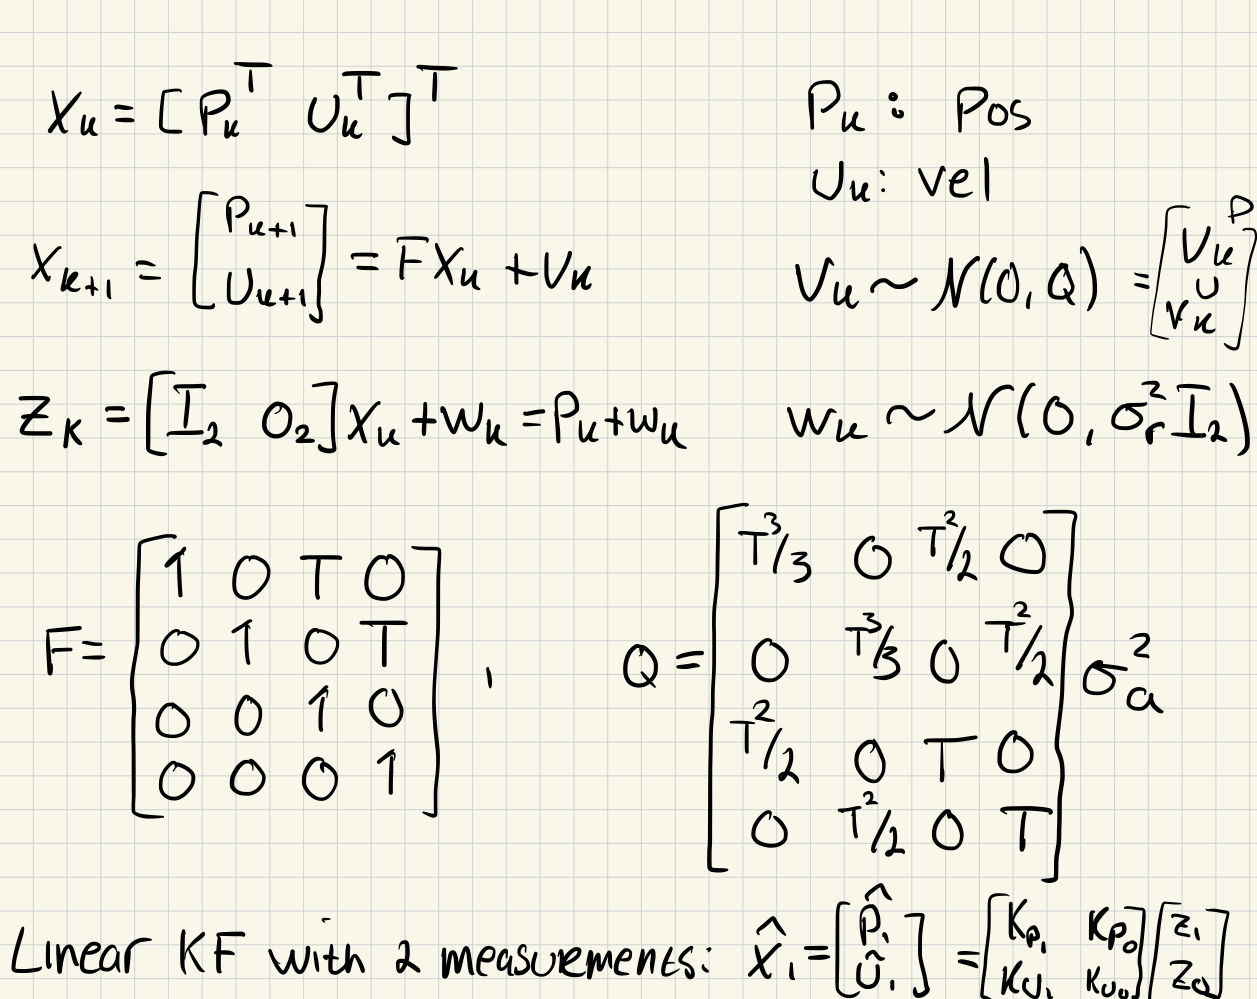 x_k = [P_k^T U_k^T]^T
P_k : Pos
U_k: vel
x_{k+1} = [P_{k+1} U_{k+1}] = F x_k + V_k
V_k ~ N(0, Q) = [V_k^P V_k^U]
z_k = [I_2 O_2] x_k + w_k = P_k + w_k
w_k ~ N(0, σ_r^2 I_2)
F = [1 0 T 0
0 1 0 T
0 0 1 0
0 0 0 1] ,
Q = [T^3/3 0 T^2/2 0
0 T^3/3 0 T^2/2
T^2/2 0 T 0
0 T^2/2 0 T] σ_a^2
Linear KF with 2 measurements: x̂_1 = [p̂_1 û_1] = [K_{p_1} K_{p_0} K_{u_1} K_{u_0}] [z_1 z_0]